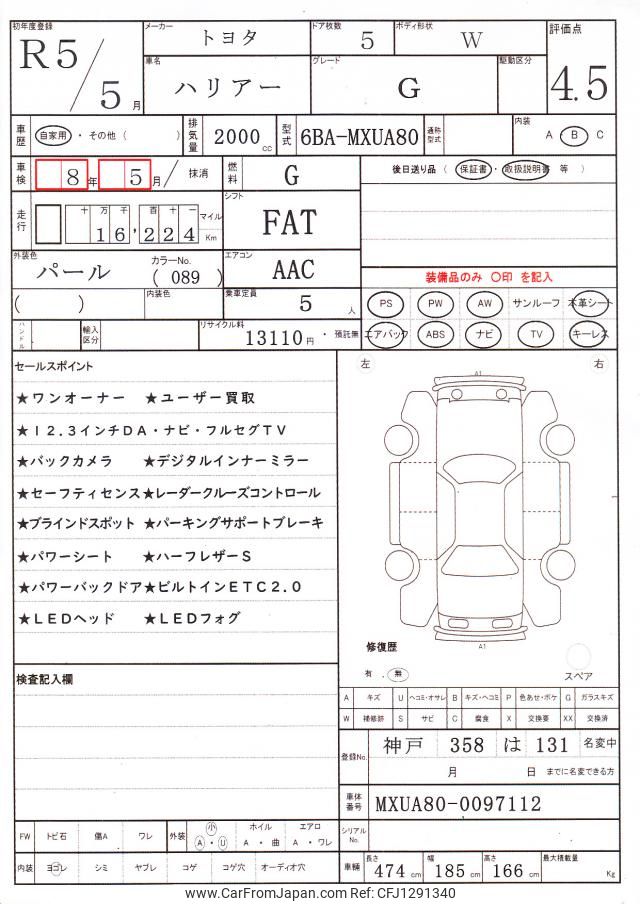 初年度登録 メーカー トヨタ ドア枚数 5 ボディ形状 W 評価点
R5/5月 車名 ハリアー グレード G 駆動区分 4.5
車歴 自家用・その他( ) 排気量 2000cc 型式 6BA-MXUA80 通称型式 内装 A・B C
車検 8年 5月/ 抹消 燃料 G 後日送り品( 保証書・取扱説明書 等 )
走行 十万千百十一 16,224 マイル Km シフト FAT
外装色 パール カラーNo. (089) エアコン AAC 装備品のみ ○印 を記入
( ) 内装色 乗車定員 5人 PS PW AW サンルーフ 本革シート
ハンドル 輸入区分 リサイクル料 13110円・預託無 エアバック ABS ナビ TV キーレス
セールスポイント
★ワンオーナー ★ユーザー買取
★12.3インチDA・ナビ・フルセグTV
★バックカメラ ★デジタルインナーミラー
★セーフティセンス★レーダークルーズコントロール
★ブラインドスポット ★パーキングサポートブレーキ
★パワーシート ★ハーフレザーS
★パワーバックドア★ビルトインETC2.0
★LEDヘッド ★LEDフォグ
検査記入欄
左 右
A1
A1
修復歴
有 . 無 スペア
A キズ U ヘコミ・オサレ B キズ・ヘコミ P 色あせ・ボケ G ガラスキズ
W 補修跡 S サビ C 腐食 X 交換要 XX 交換済
登録No. 神戸 358 は 131 名変中
月 日 までに名変できる方
車体番号 MXUA80-0097112
シリアルNo.
FW トビ石 傷A ワレ 外装 小 A・U ホイル A・曲 エアロ A・ワレ
内装 ヨゴレ シミ ヤブレ コゲ コゲ穴 オーディオ穴
車輌 長さ 474cm 幅 185cm 高さ 166cm 最大積載量 Kg
www.CarFromJapan.com Ref: CFJ1291340